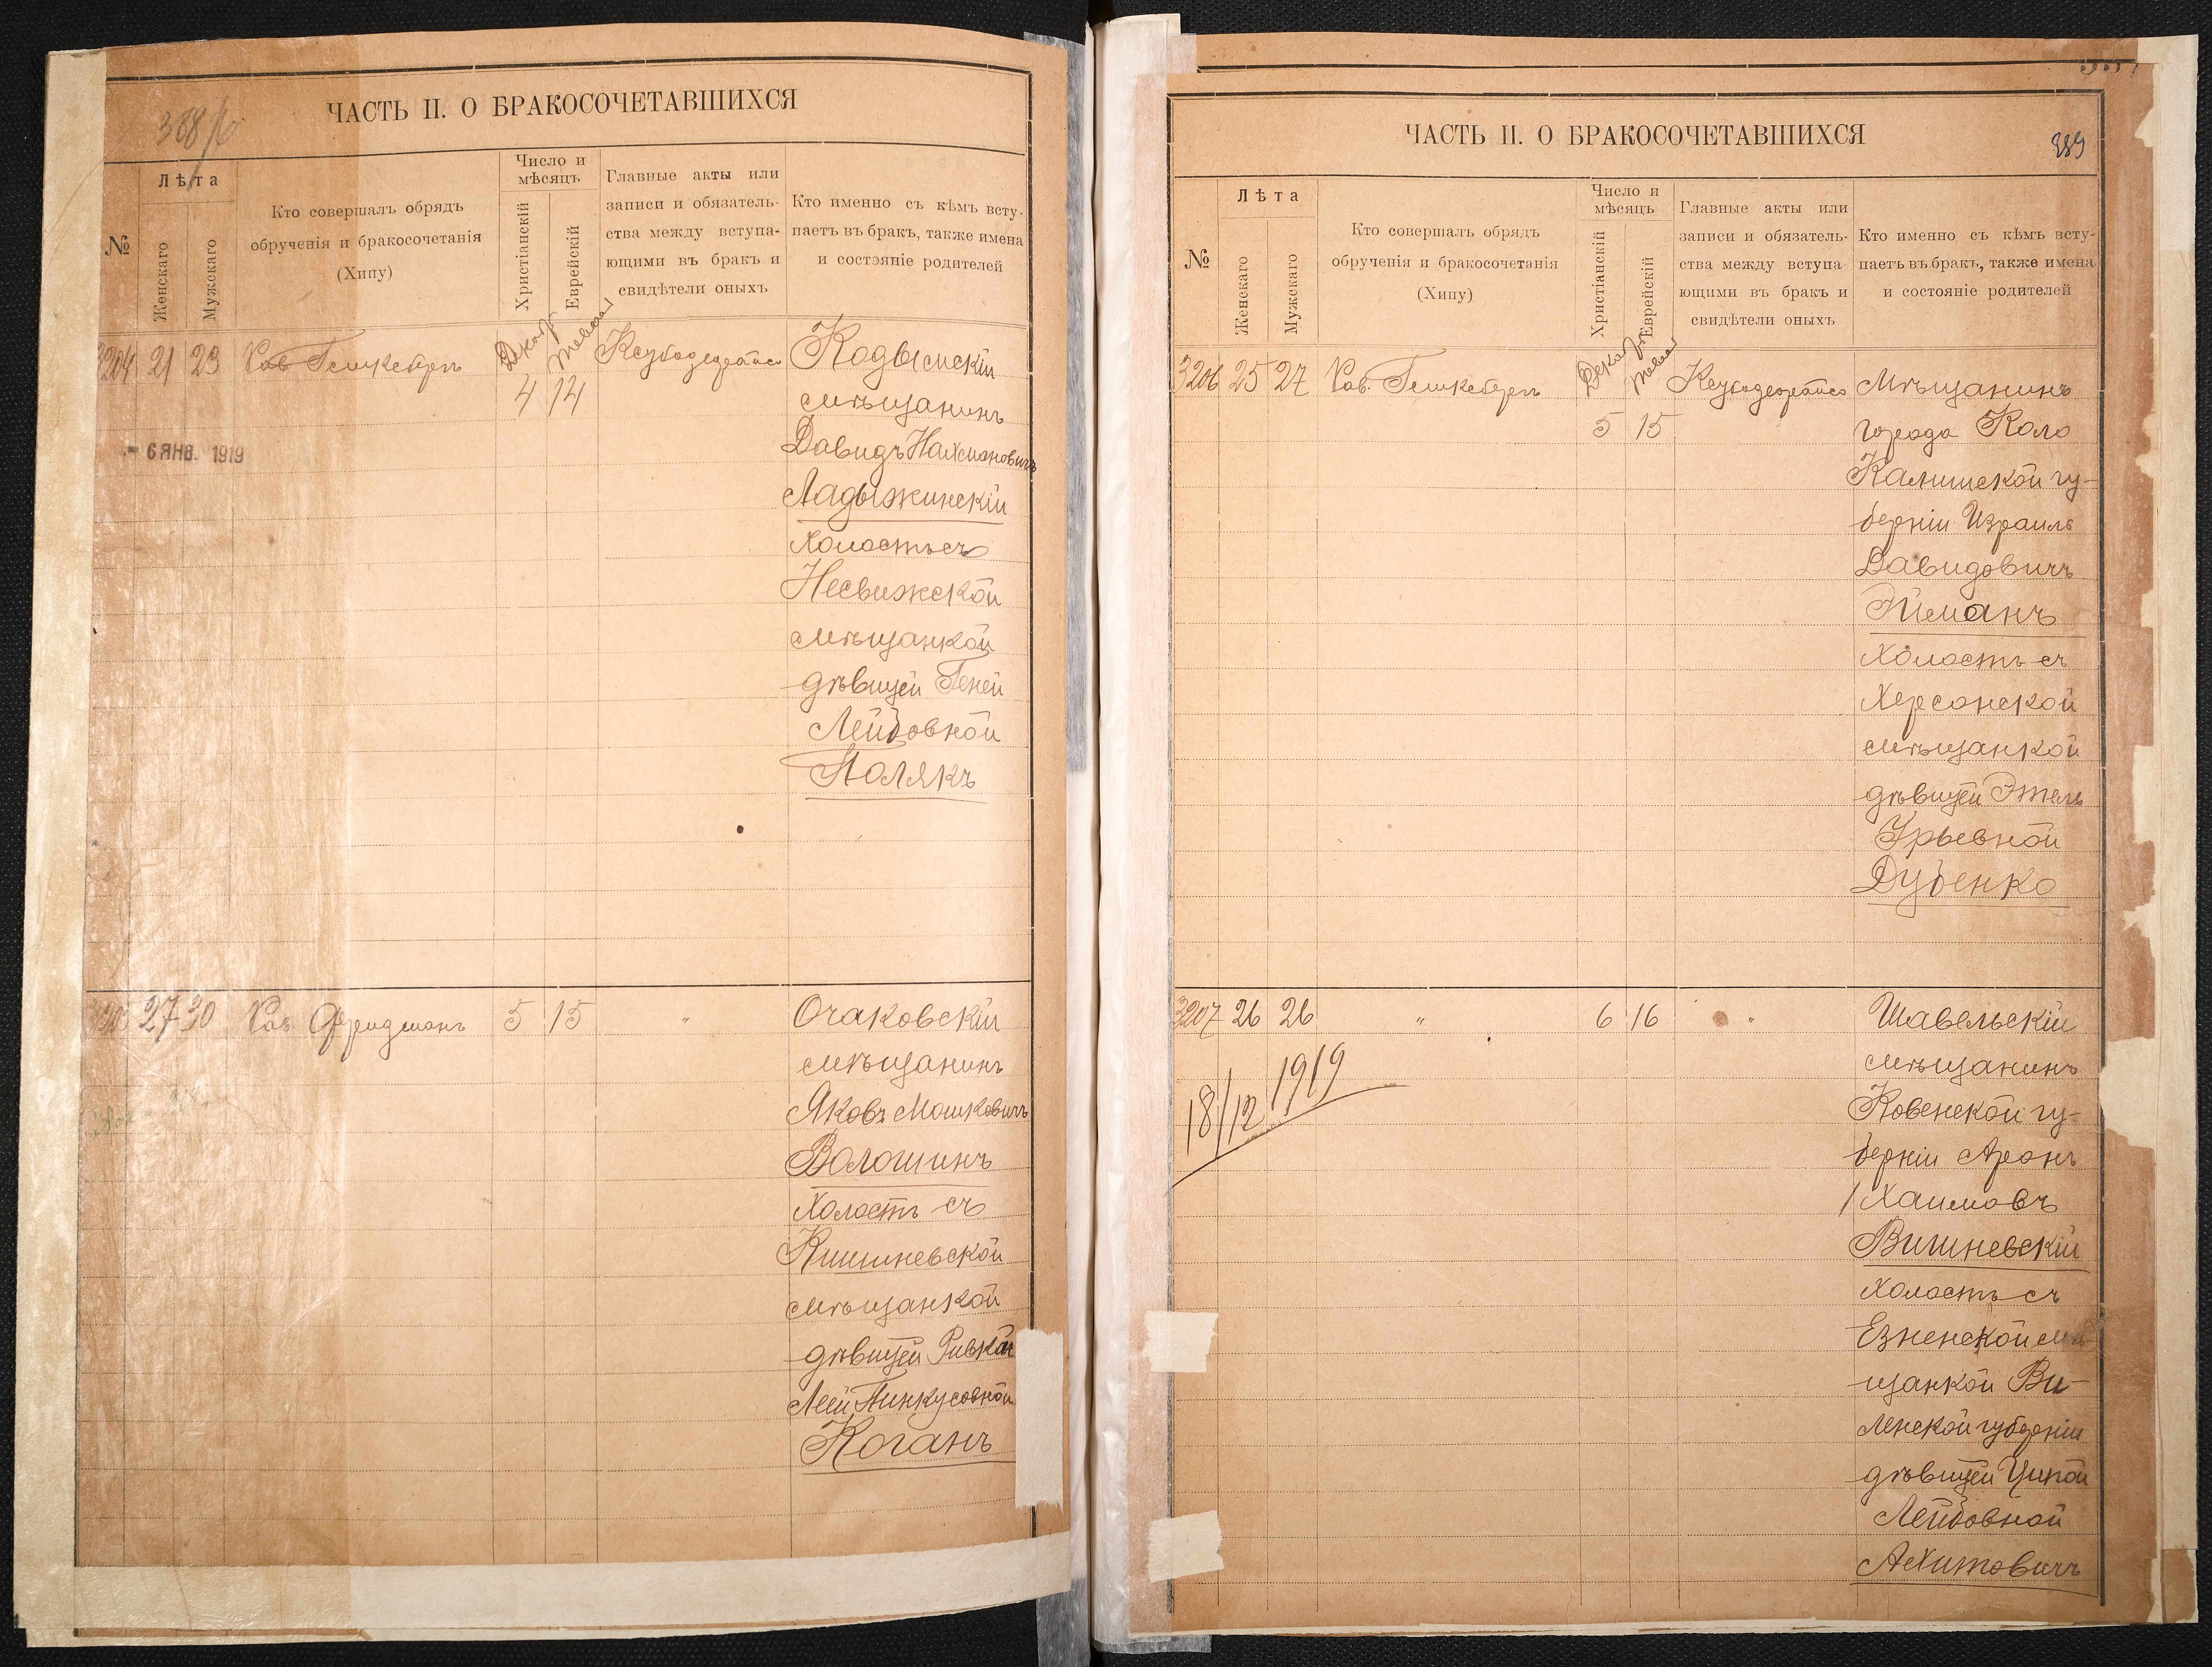 ЧАСТЬ II. О БРАКОСОЧЕТАВШИХСЯ
№
Лѣта
Женскаго
Мужскаго
Кто совершалъ обрядъ
обрученія и бракосочетанія
(Хипу)
Число и
мѣсяцъ
Христіанскій
Еврейскій
Главные акты или
записи и обязатель-
ства между вступа-
ющими въ бракъ и
свидѣтели оныхъ
Кто именно съ кѣмъ всту-
паетъ въ бракъ, также имена
и состояніе родителей
3204 21 23
4 14
Кодымскій
мѣщанинъ
Давидъ Нахмановичъ
Ладыжинскій
Холостъ съ
Несвижской
мѣщанкой
дѣвицей Геней
Лейбовной
Полякъ
6 ЯНВ. 1919
3205 27 30 Рав. Фридманъ 5 15 "
Очаковскій
мѣщанинъ
Яковъ Мошковичъ
Волошинъ
Холостъ съ
Кишиневской
мѣщанкой
дѣвицей Ривкой
Леей Пинкусовной
Коганъ
ЧАСТЬ II. О БРАКОСОЧЕТАВШИХСЯ
389
№
Лѣта
Женскаго
Мужскаго
Кто совершалъ обрядъ
обрученія и бракосочетанія
(Хипу)
Число и
мѣсяцъ
Христіанскій
Еврейскій
Главные акты или
записи и обязатель-
ства между вступа-
ющими въ бракъ и
свидѣтели оныхъ
Кто именно съ кѣмъ всту-
паетъ въ бракъ, также имена
и состояніе родителей
3206 25 27
5 15
Мѣщанинъ
города Коло
Калишской гу-
берніи Израиль
Давидовичъ
Эйманъ
Холостъ съ
Херсонской
мѣщанкой
дѣвицей Этель
Урьевной
Дубенко
3207 26 26 " 6 16 "
18/12 1919
Шавельскій
мѣщанинъ
Ковенской гу-
берніи Аронъ
Хаимовъ
Вишневскій
Холостъ съ
Езненской мѣ-
щанкой Ви-
ленской губерніи
дѣвицей Ципой
Лейбовной
Ахитовичъ